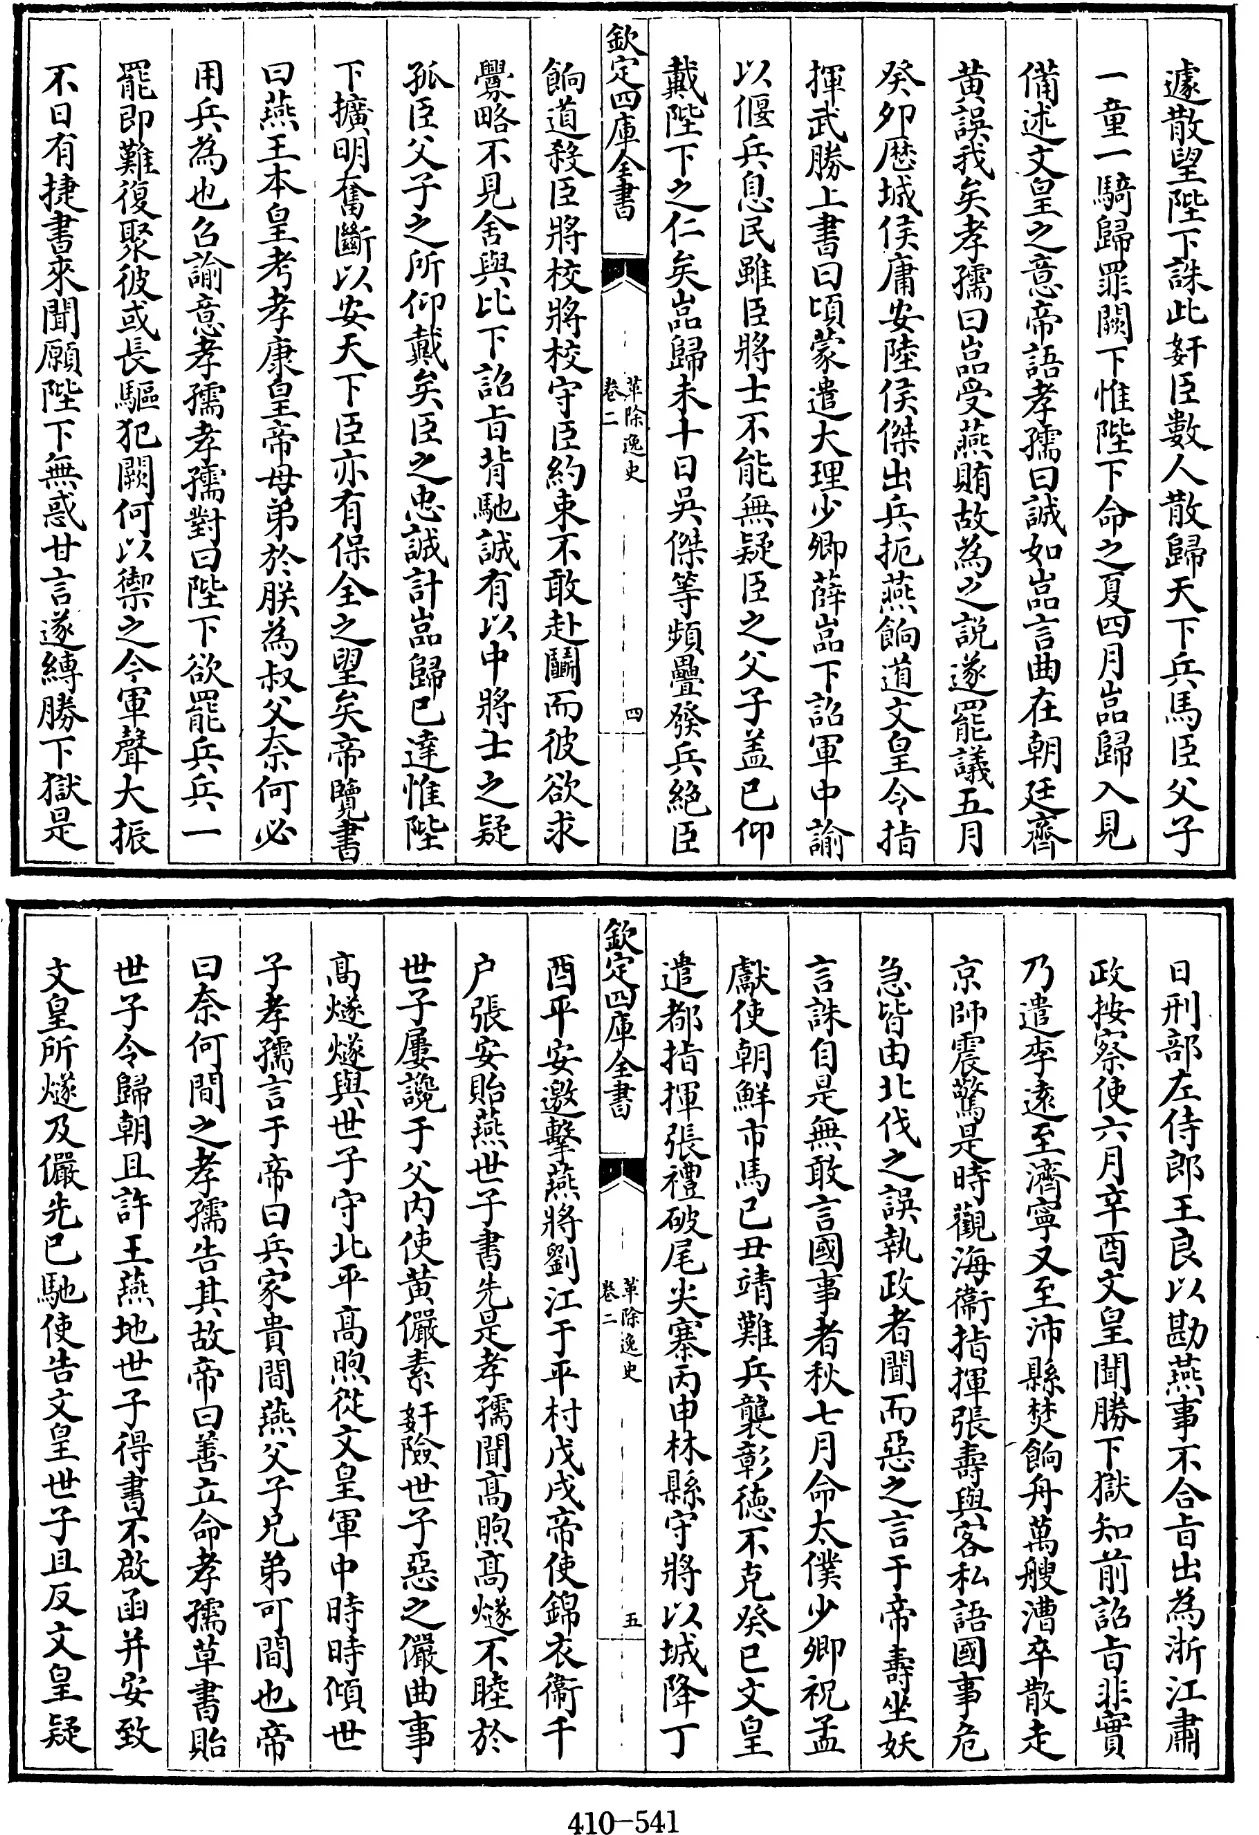 遽散望陛下誅此姧臣數人散歸天下兵馬臣父子
一童一騎歸罪闕下惟陛下命之夏四月嵓歸入見
備述文皇之意帝語孝孺曰誠如嵓言曲在朝廷齊
黄誤我矣孝孺曰嵓受燕賄故為之説遂罷議五月
癸夘厯城侯庸安陸侯傑出兵扼燕餉道文皇令指
揮武勝上書曰頃蒙遣大理少卿薛嵓下詔軍中諭
以偃兵息民雖臣將士不能無疑臣之父子盖已仰
戴陛下之仁矣嵓歸未十日吳傑等頻疊發兵絶臣
欽定四庫全書
革除逸史
卷二
四
餉道殺臣將校將校守臣約束不敢赴鬭而彼欲求
釁略不見舍與比下詔㫖背馳誠有以中將士之疑
孤臣父子之所仰戴矣臣之忠誠計嵓歸已達惟陛
下擴明奮斷以安天下臣亦有保全之望矣帝覽書
曰燕王本皇考孝康皇帝母弟於朕為叔父奈何必
用兵為也召諭意孝孺孝孺對曰陛下欲罷兵兵一
罷即難復聚彼或長驅犯闕何以禦之今軍聲大振
不日有捷書來聞願陛下無惑甘言遂縛勝下獄是
日刑部左侍郎王良以勘燕事不合㫖出為浙江肅
政按察使六月辛酉文皇聞勝下獄知前詔㫖非實
乃遣李逺至濟寧又至沛縣焚餉舟萬艘漕卒散走
京師震驚是時觀海衞指揮張壽與客私語國事危
急皆由北伐之誤執政者聞而惡之言于帝壽坐妖
言誅自是無敢言國事者秋七月命太僕少卿祝孟
獻使朝鮮市馬己丑靖難兵襲彰徳不克癸巳文皇
遣都指揮張禮破尾尖寨丙申林縣守將以城降丁
欽定四庫全書
革除逸史
卷二
五
酉平安邀擊燕將劉江于平村戊戌帝使錦衣衞千
户張安貽燕世子書先是孝孺聞高煦高燧不睦於
世子屢讒于父内使黄儼素姧險世子惡之儼曲事
高燧燧與世子守北平高煦從文皇軍中時時傾世
子孝孺言于帝曰兵家貴間燕父子兄弟可間也帝
曰奈何間之孝孺告其故帝曰善立命孝孺草書貽
世子令歸朝且許王燕地世子得書不啟函并安致
文皇所燧及儼先已馳使告文皇世子且反文皇疑
410-541